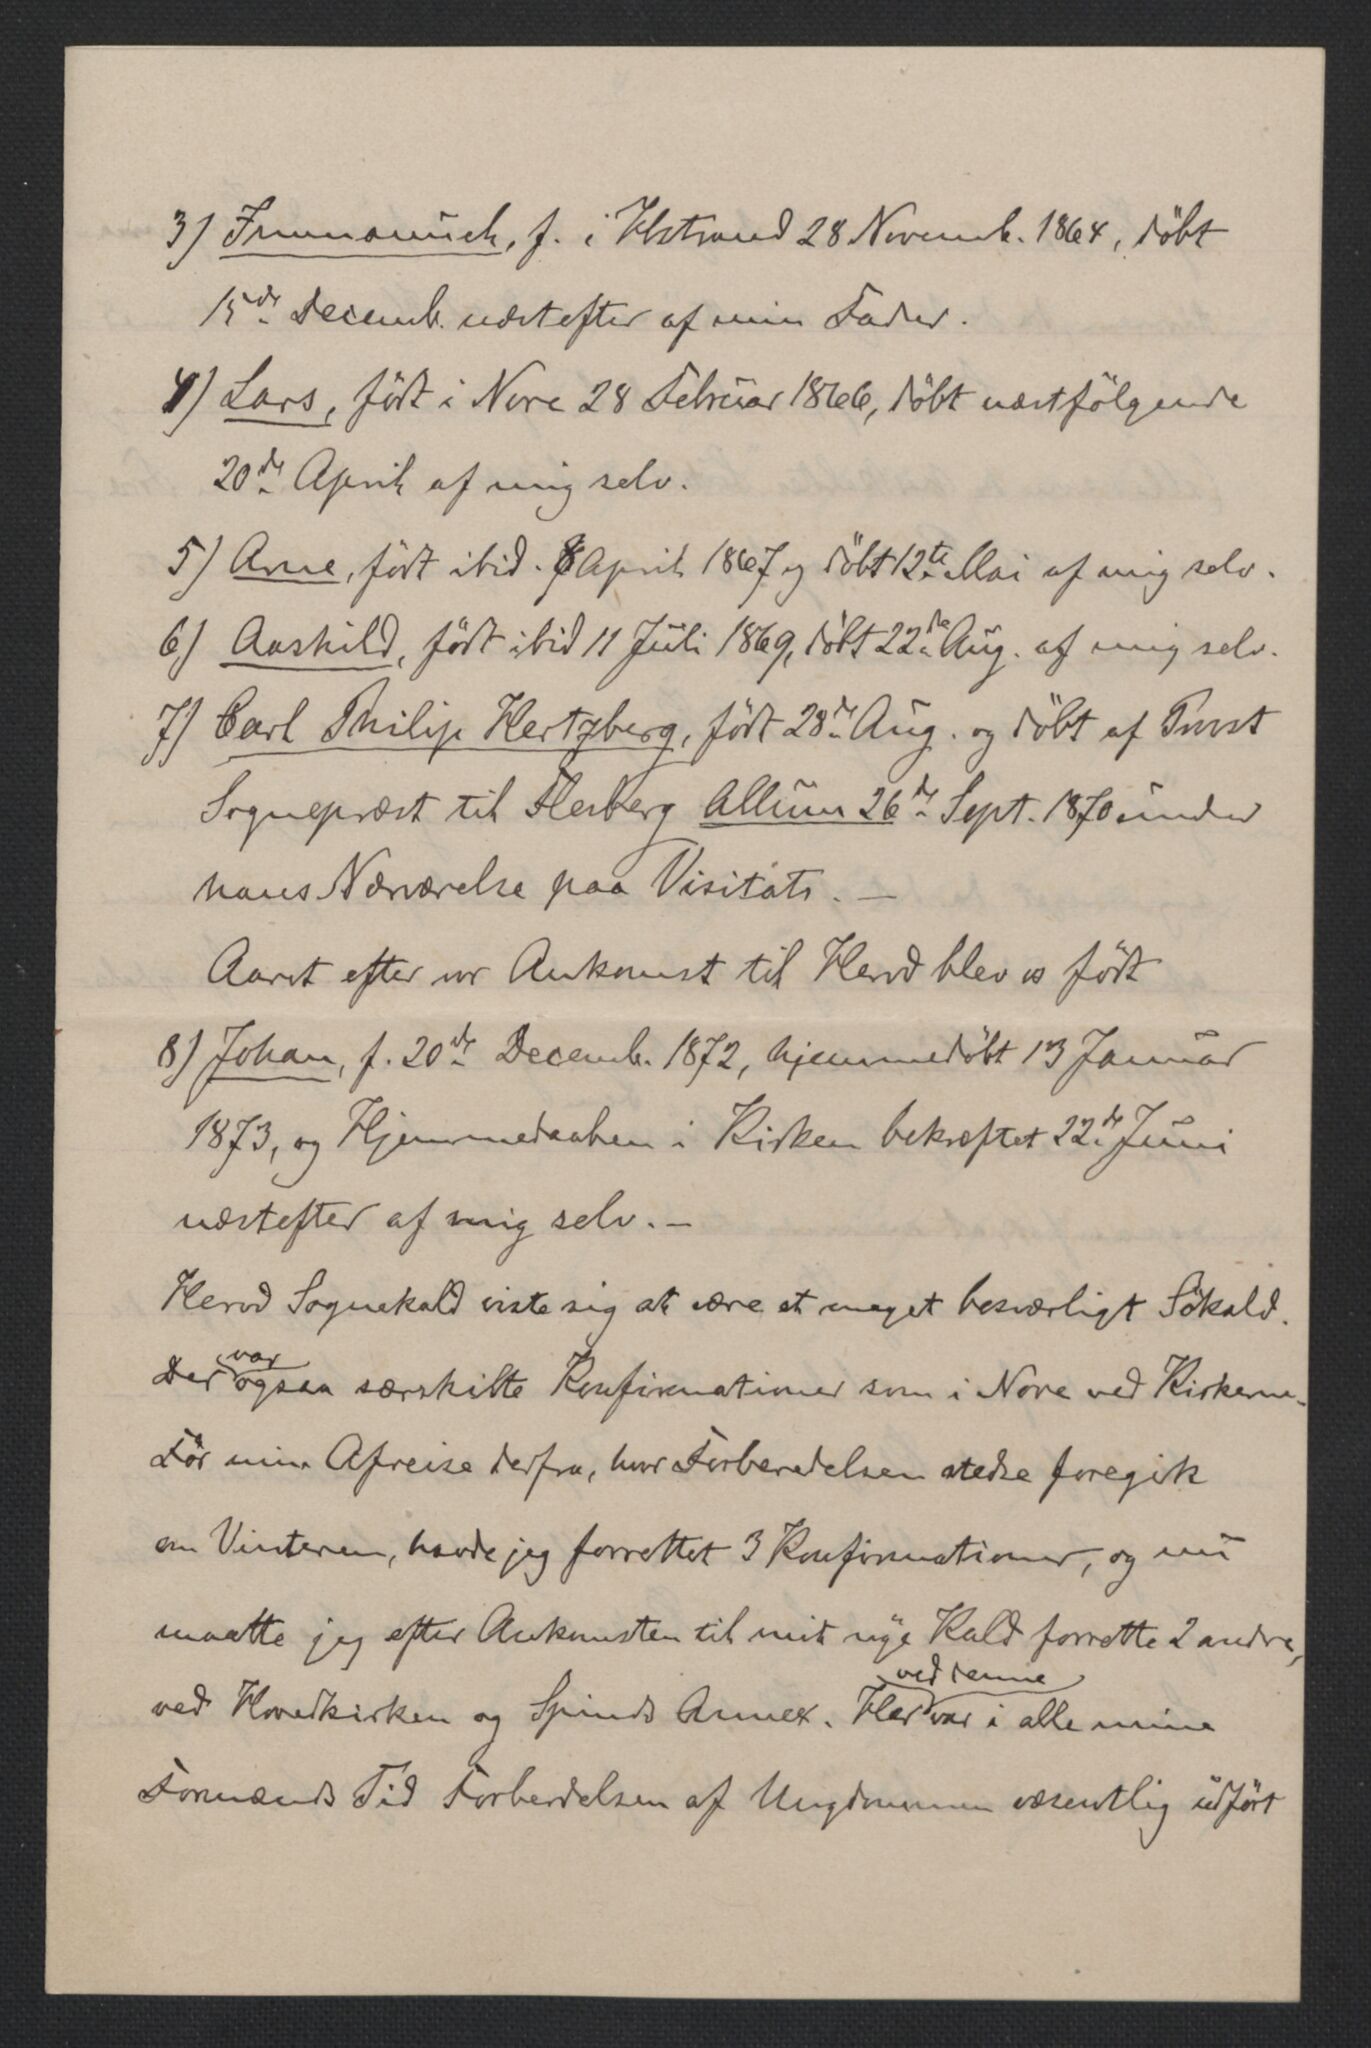 3) Immanuel, f. i Ulstrand 28 Novemb. 1864, döbt
15de Decemb. næstefter af min Fader.
4) Lars, födt i Nore 28 Februar 1866, döbt næstfölgende
20de April af mig selv.
5) Arne, födt ibid. 8 April 1867 og döbt 12te Mai af mig selv.
6) Aashild, födt ibid 11 Juli 1869, döbt 22de Aug. af mig selv.
7) Carl Philip Hertzberg, födt 28de Aug. og döbt af Provst
Sognepræst til Flesberg Allum 26de Sept. 1870 under
hans Nærværelse paa Visitats. —
Aaret efter vor Ankomst til Herod blev os födt
8) Johan, f. 20de Decemb. 1872, hjemmedöbt 13 Januar
1873, og Hjemmedaaben i Kirken bekræftet 22de Juni
næstefter af mig selv. –
Herod Sognekald viste sig at være et meget besværligt Sökald.
Der var ogsaa særskilte Konfirmationer som i Nore ved Kirkerne.
För min Afreise derfra, hvor Forberedelsen stedse foregik
om Vinteren, havde jeg forrettet 3 Konfirmationer, og nu
maatte jeg efter Ankomsten til mit nye Kald forrette 2 andre,
ved Hovedkirken og Spinds Annex. Her ved denne var i alle mine
Formænds Tid Forberedelsen af Ungdommen væsentlig udfört